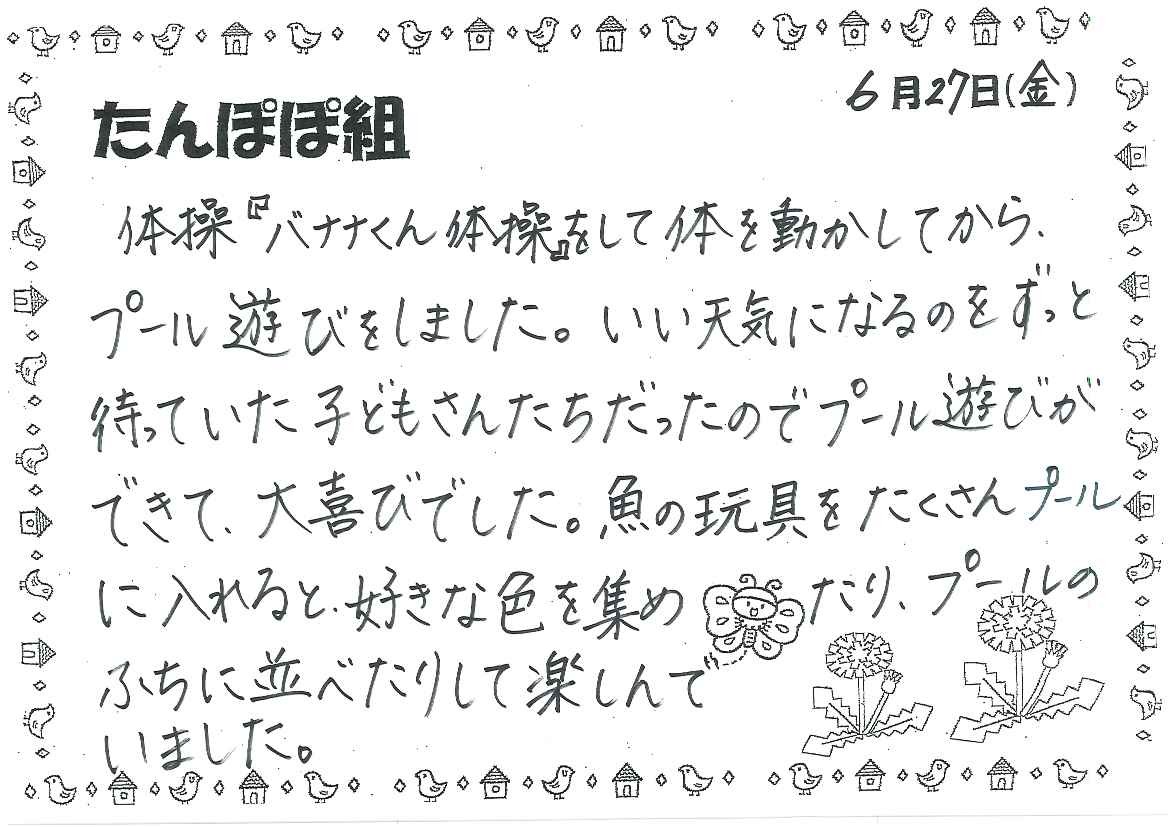 6月27日(金)
たんぽぽ組
体操『バナナくん体操』をして体を動かしてから、
プール遊びをしました。いい天気になるのをずっと
待っていた子どもさんたちだったのでプール遊びが
できて、大喜びでした。魚の玩具をたくさんプール
に入れると、好きな色を集めたり、プールの
ふちに並べたりして楽しんで
いました。